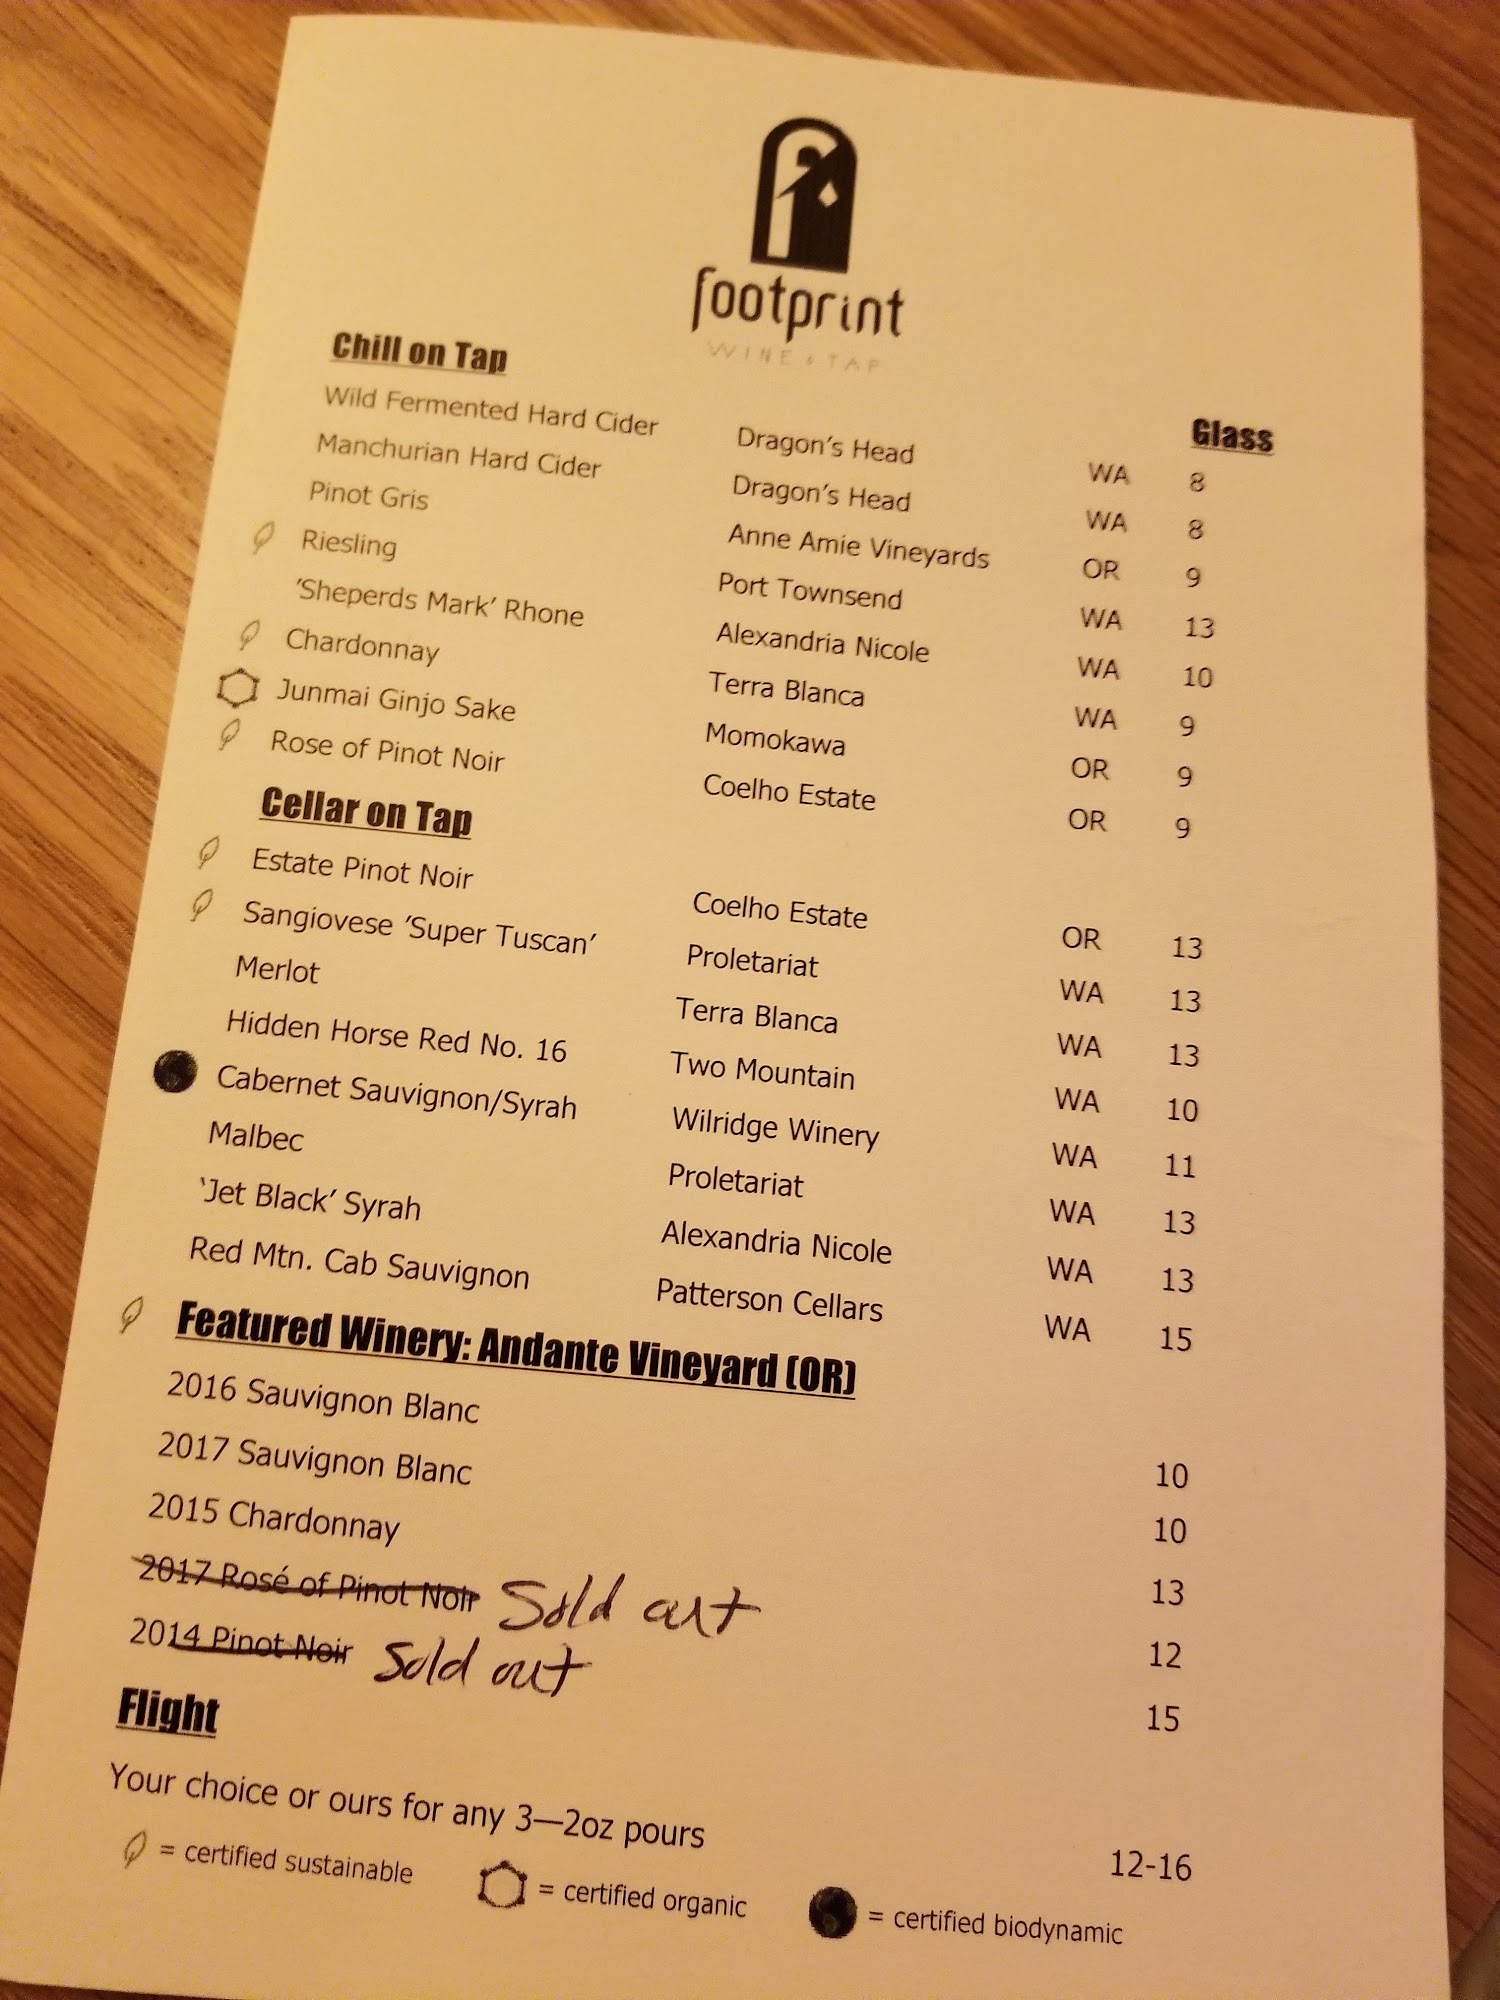 footprint
WINE + TAP
Chill on Tap Glass
Wild Fermented Hard Cider Dragon's Head WA 8
Manchurian Hard Cider Dragon's Head WA 8
Pinot Gris Anne Amie Vineyards OR 9
Riesling Port Townsend WA 13
'Sheperds Mark' Rhone Alexandria Nicole WA 10
Chardonnay Terra Blanca WA 9
Junmai Ginjo Sake Momokawa OR 9
Rose of Pinot Noir Coelho Estate OR 9
Cellar on Tap
Estate Pinot Noir Coelho Estate OR 13
Sangiovese 'Super Tuscan' Proletariat WA 13
Merlot Terra Blanca WA 13
Hidden Horse Red No. 16 Two Mountain WA 10
Cabernet Sauvignon/Syrah Wilridge Winery WA 11
Malbec Proletariat WA 13
'Jet Black' Syrah Alexandria Nicole WA 13
Red Mtn. Cab Sauvignon Patterson Cellars WA 15
Featured Winery: Andante Vineyard (OR)
2016 Sauvignon Blanc 10
2017 Sauvignon Blanc 10
2015 Chardonnay 13
2017 Rosé of Pinot Noir Sold out 12
2014 Pinot Noir Sold out 15
Flight
Your choice or ours for any 3—2oz pours 12-16
= certified sustainable = certified organic = certified biodynamic